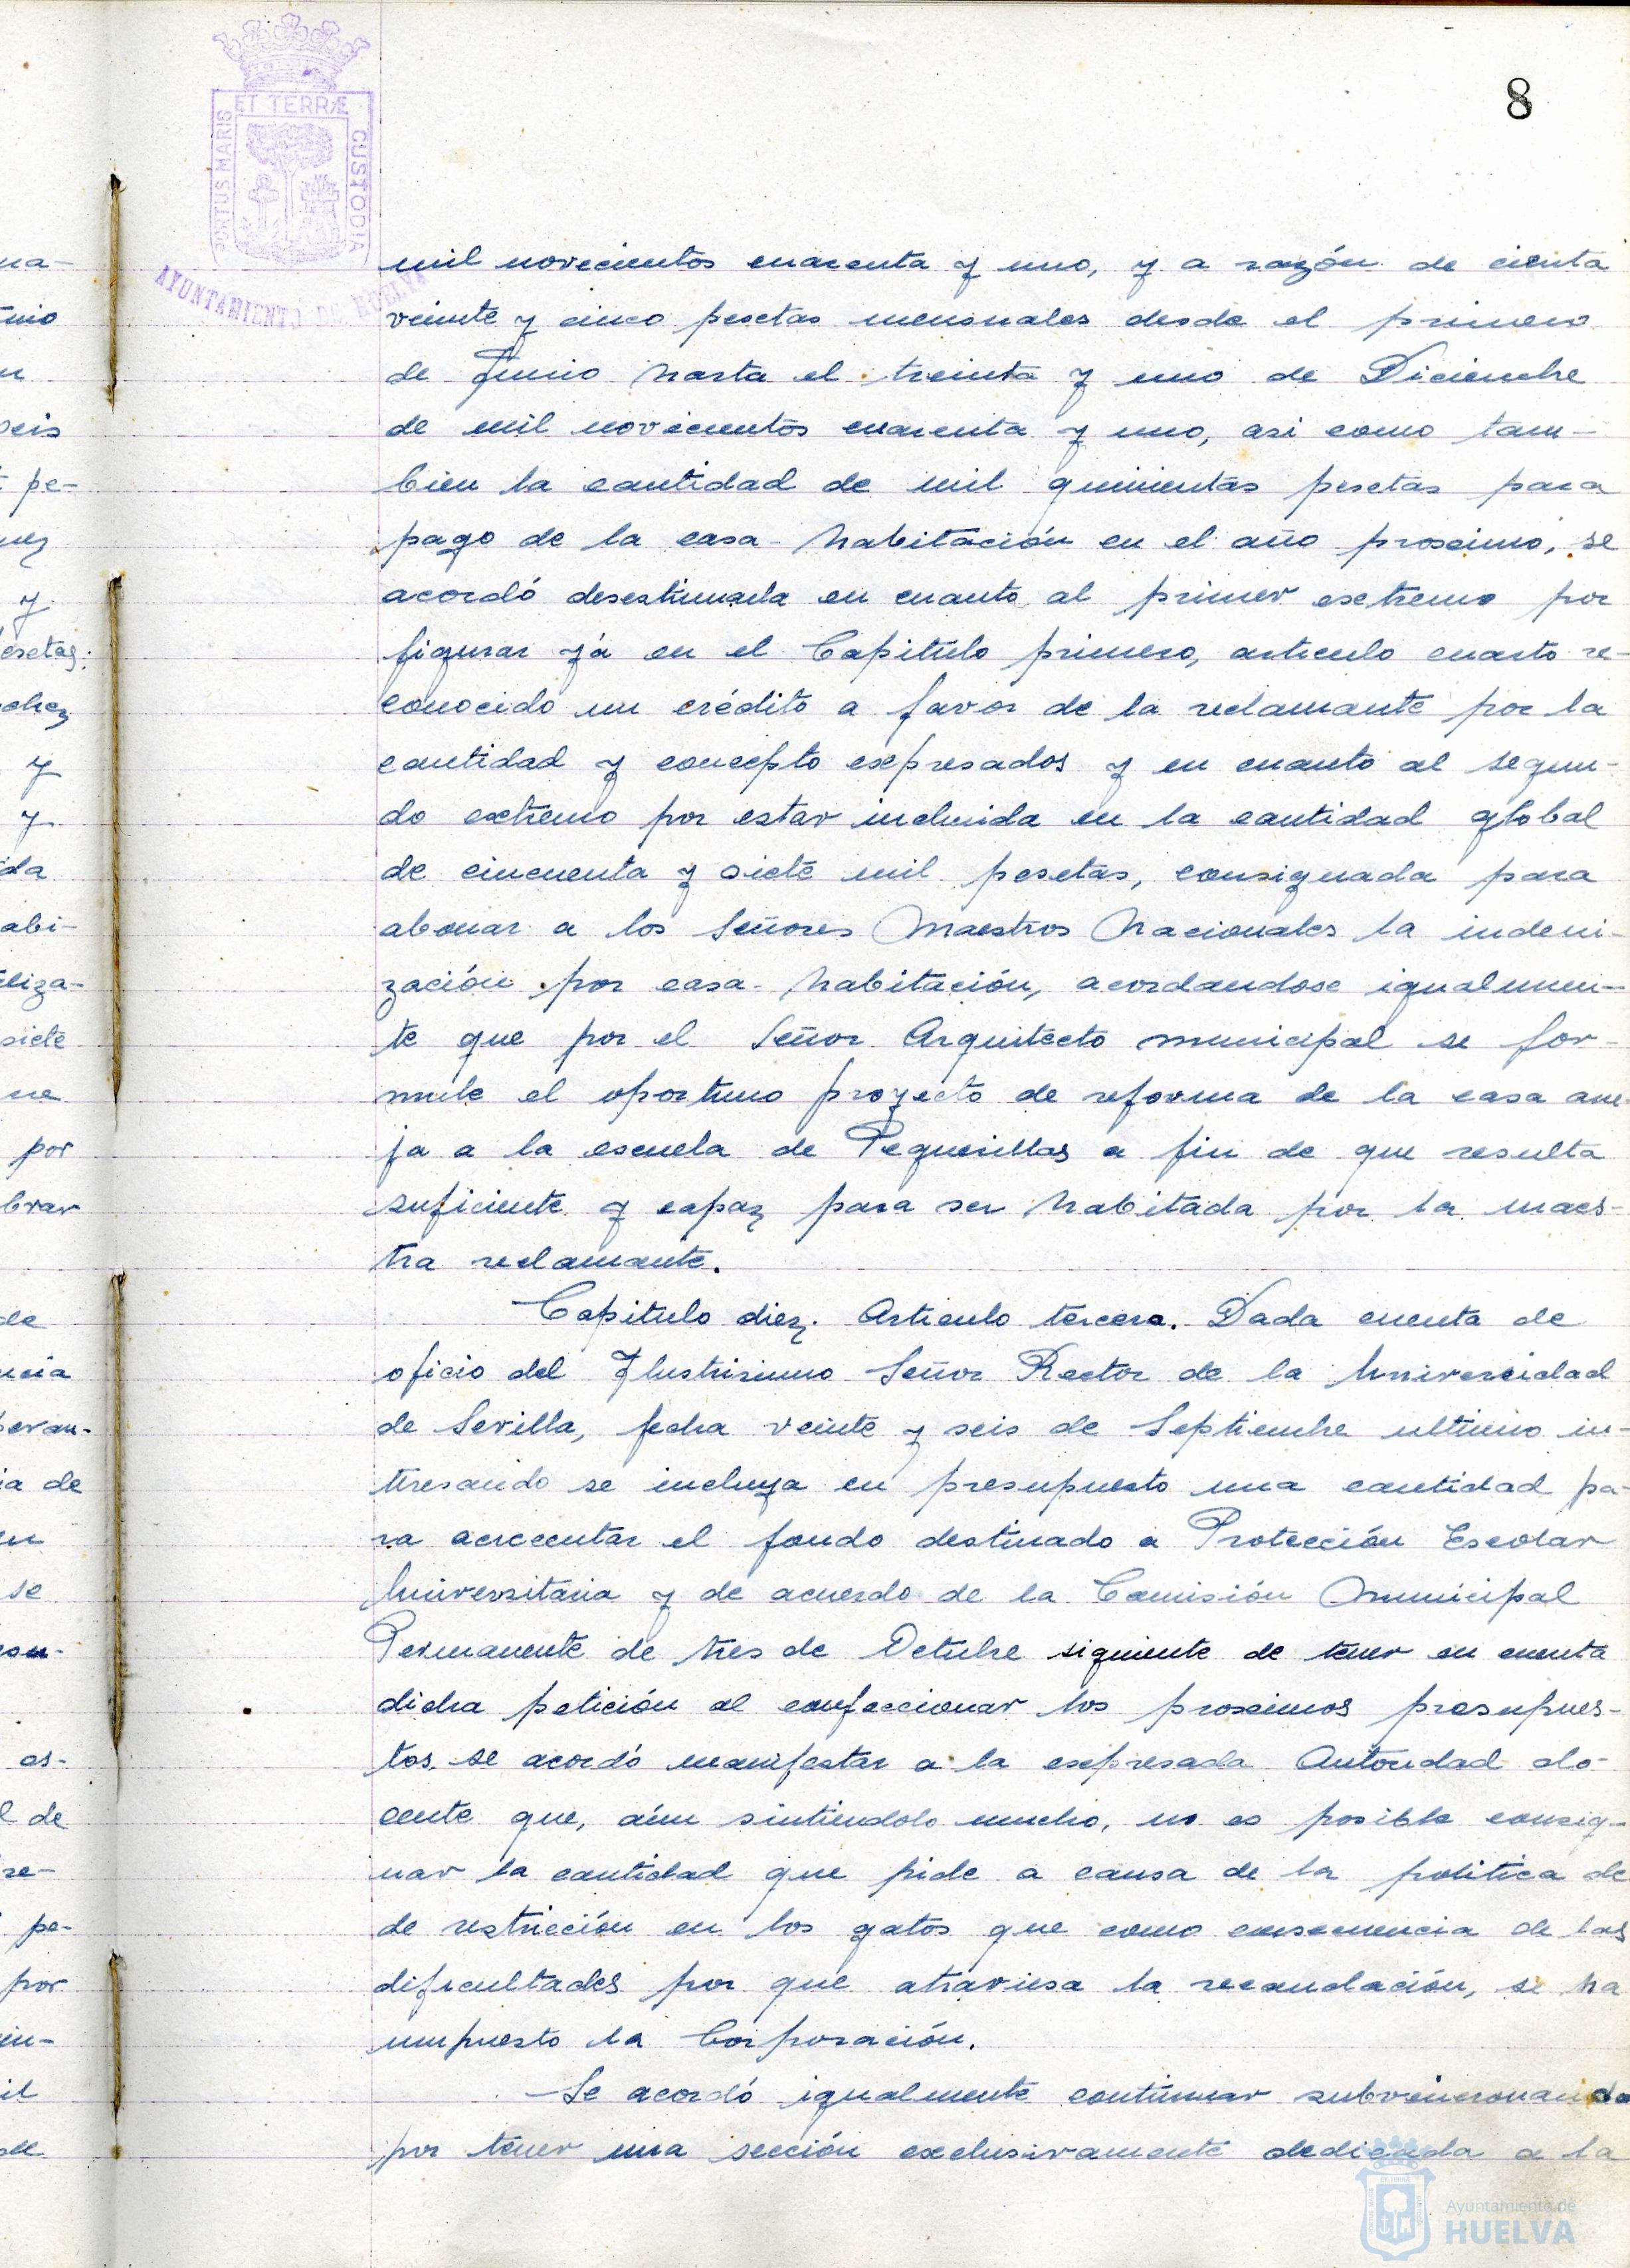 8
PORTUS MARIS
ET TERRÆ
CUSTODIA
AYUNTAMIENTO DE HUELVA
mil novecientos cuarenta y uno, y a razón de cienta
veinte y cinco pesetas mensuales desde el primero
de Junio hasta el treinta y uno de Diciembre
de mil novecientos cuarenta y uno, asi como tam-
bien la cantidad de mil quinientas pesetas para
pago de la casa-habitación en el año proximo, se
acordó desestimarla en cuanto al primer extremo por
figurar yá en el Capitulo primero, articulo cuarto re-
conocido un crédito a favor de la reclamante por la
cantidad y concepto expresados y en cuanto al segun-
do extremo por estar incluida en la cantidad global
de cincuenta y siete mil pesetas, consignada para
abonar a los Señores Maestros Nacionales la indeni-
zación por casa-habitación, acordandose igualmen-
te que por el Señor Arquitecto municipal se for-
mule el oportuno proyecto de reforma de la casa ane-
ja a la escuela de Pequerillas a fin de que resulta
suficiente y capaz para ser habitada por la maes-
tra reclamante.
Capitulo diez. Articulo tercero. Dada cuenta de
oficio del Ilustrisimo Señor Rector de la Universidad
de Sevilla, fecha veinte y seis de Septiembre ultimo in-
tresando se incluya en presupuesto una cantidad pa-
ra acrecentar el fondo destinado a Protección Escolar
Universitaria y de acuerdo de la Comisión Municipal
Permanente de tres de Octubre siguiente de tener en cuenta
dicha petición al confeccionar los proximos presupues-
tos, se acordó manifestar a la expresada Autoridad do-
cente que, aún sintiendolo mucho, no es posible consig-
nar la cantidad que pide a causa de la politica de
de restricción en los gatos que como consecuencia de las
dificultades por que atraviesa la recaudación, se ha
impuesto la Corporación.
Se acordó igualmente continuar subvencionando
por tener una sección exclusivamente dedicada a la
Ayuntamiento de
HUELVA